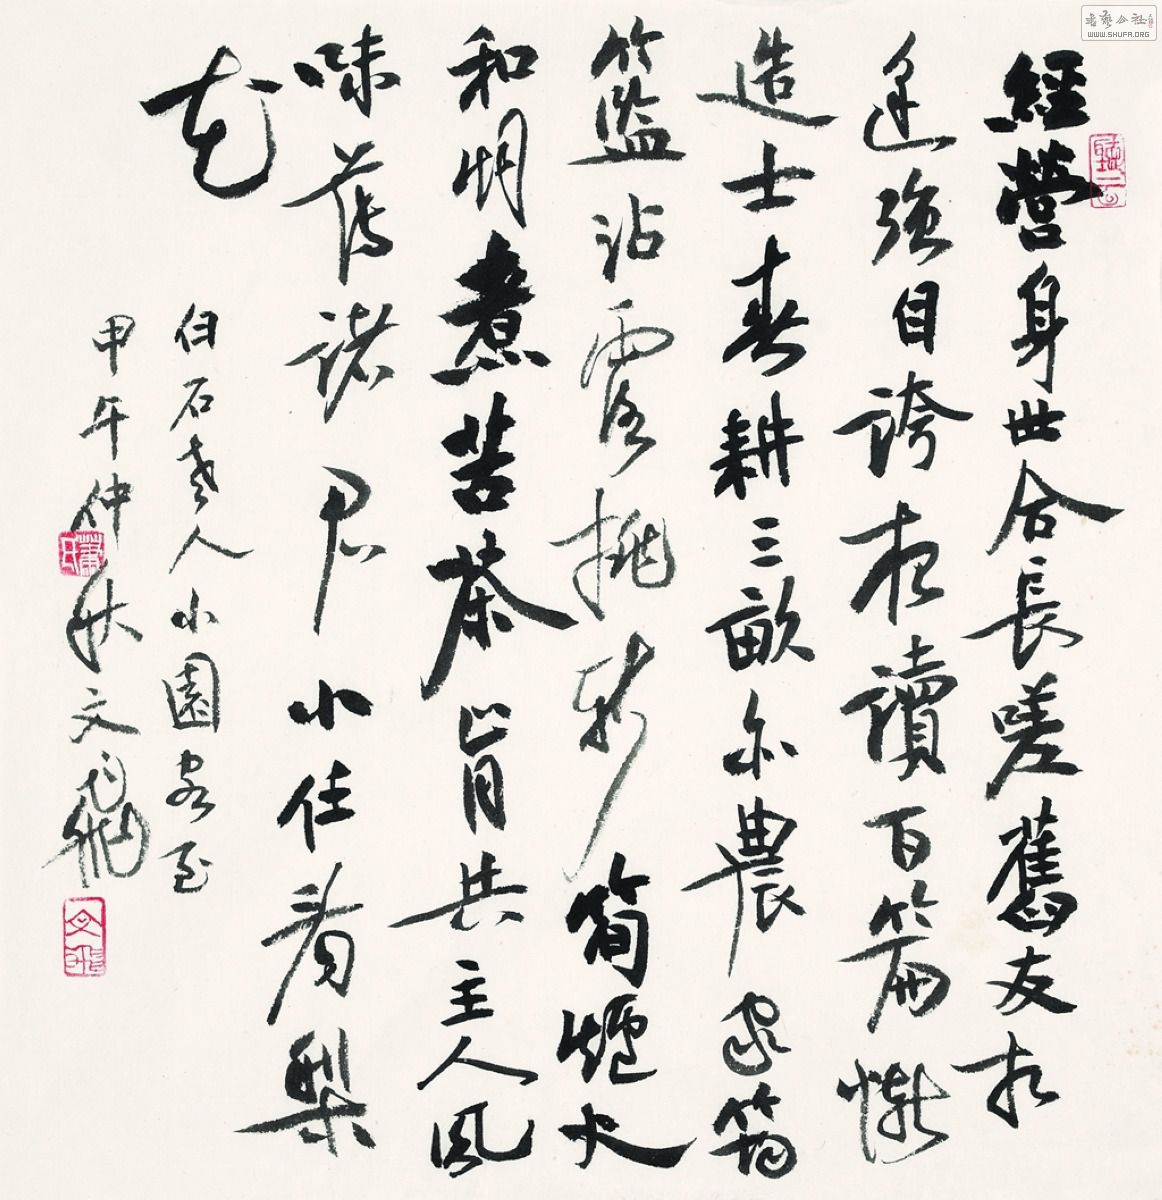 經營身世合長嗟舊友相
逢強自誇夜讀百篇慚
造士春耕三畝亦農家筠
籃沾露挑新筍爐火
和明煮苦茶肯共主人風
味薄諸君小住看梨
花
白石老人小園客至
甲午仲秋文飛
書藝公社
WWW.SHUFA.ORG